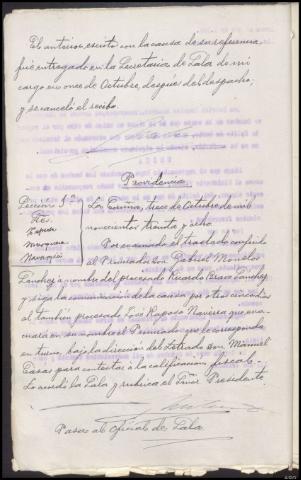 El anterior escrito con la causa de su referencia,
fué entregado en la Secretaría de Sala de mi
cargo en once de Octubre, después del despacho;
y se canceló el recibo.
Providencia
Sección 1ª
Sres.
Zapata
Marquina
Navarro
La Coruña, trece de Octubre de mil
novecientos treinta y ocho.
Por evacuado el traslado conferido
al Procurador Don Gabriel Morales
Sanchez a nombre del procesado Ricardo Bravo Sanchez
y siga la comunicación de la causa por otros cinco días
al también procesado José Raposo Naveira que eva-
cuará en su nombre el Procurador que le corresponda
en turno, bajo la dirección del Letrado Don Manuel
Casas para contestar a la calificación fiscal.
Lo acordó la Sala y rubrica el Señor Presidente
Pasa al Oficial de Sala